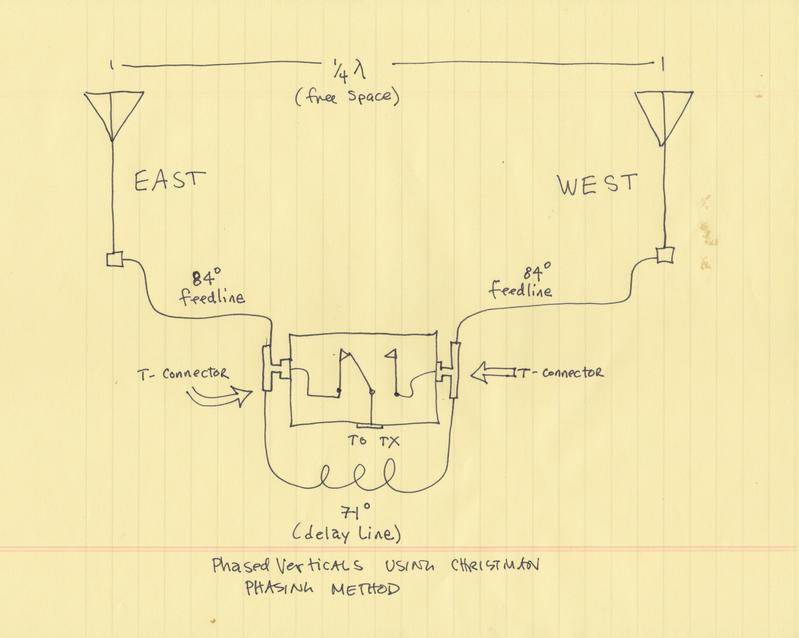 1/4 λ
(free space)
EAST
WEST
84° feedline
84° feedline
T-CONNECTOR
T-CONNECTOR
TO TX
71°
(delay Line)
Phased Verticals USING CHRISTMAN
PHASING METHOD